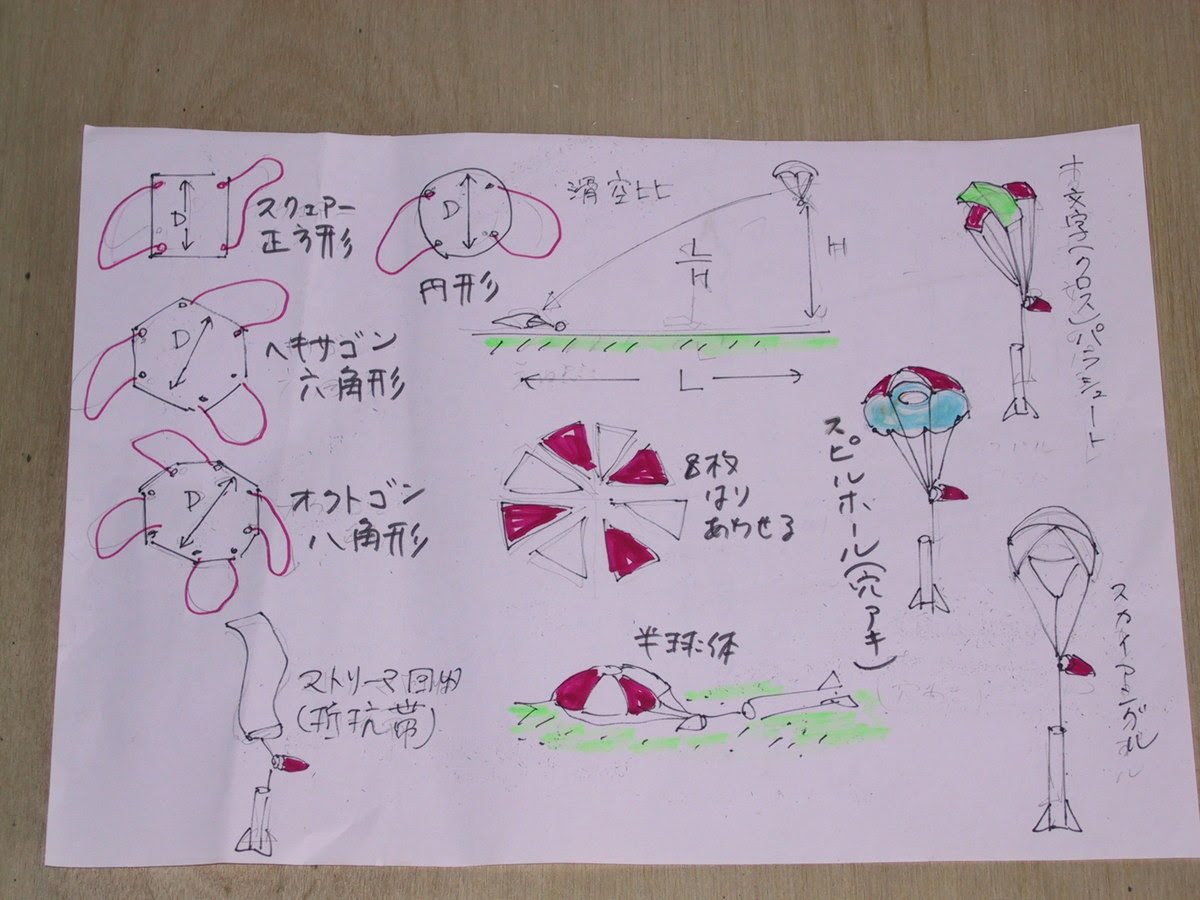 D
スクェアー
正方形
D
円形
滑空比
L
H
H
L
D
ヘキサゴン
六角形
D
オクトゴン
八角形
8枚
はり
あわせる
十文字(クロス)パラシュート
スピルホール(穴アキ)
スカイアングル
半球体
ストリーマ回収
(抵抗帯)